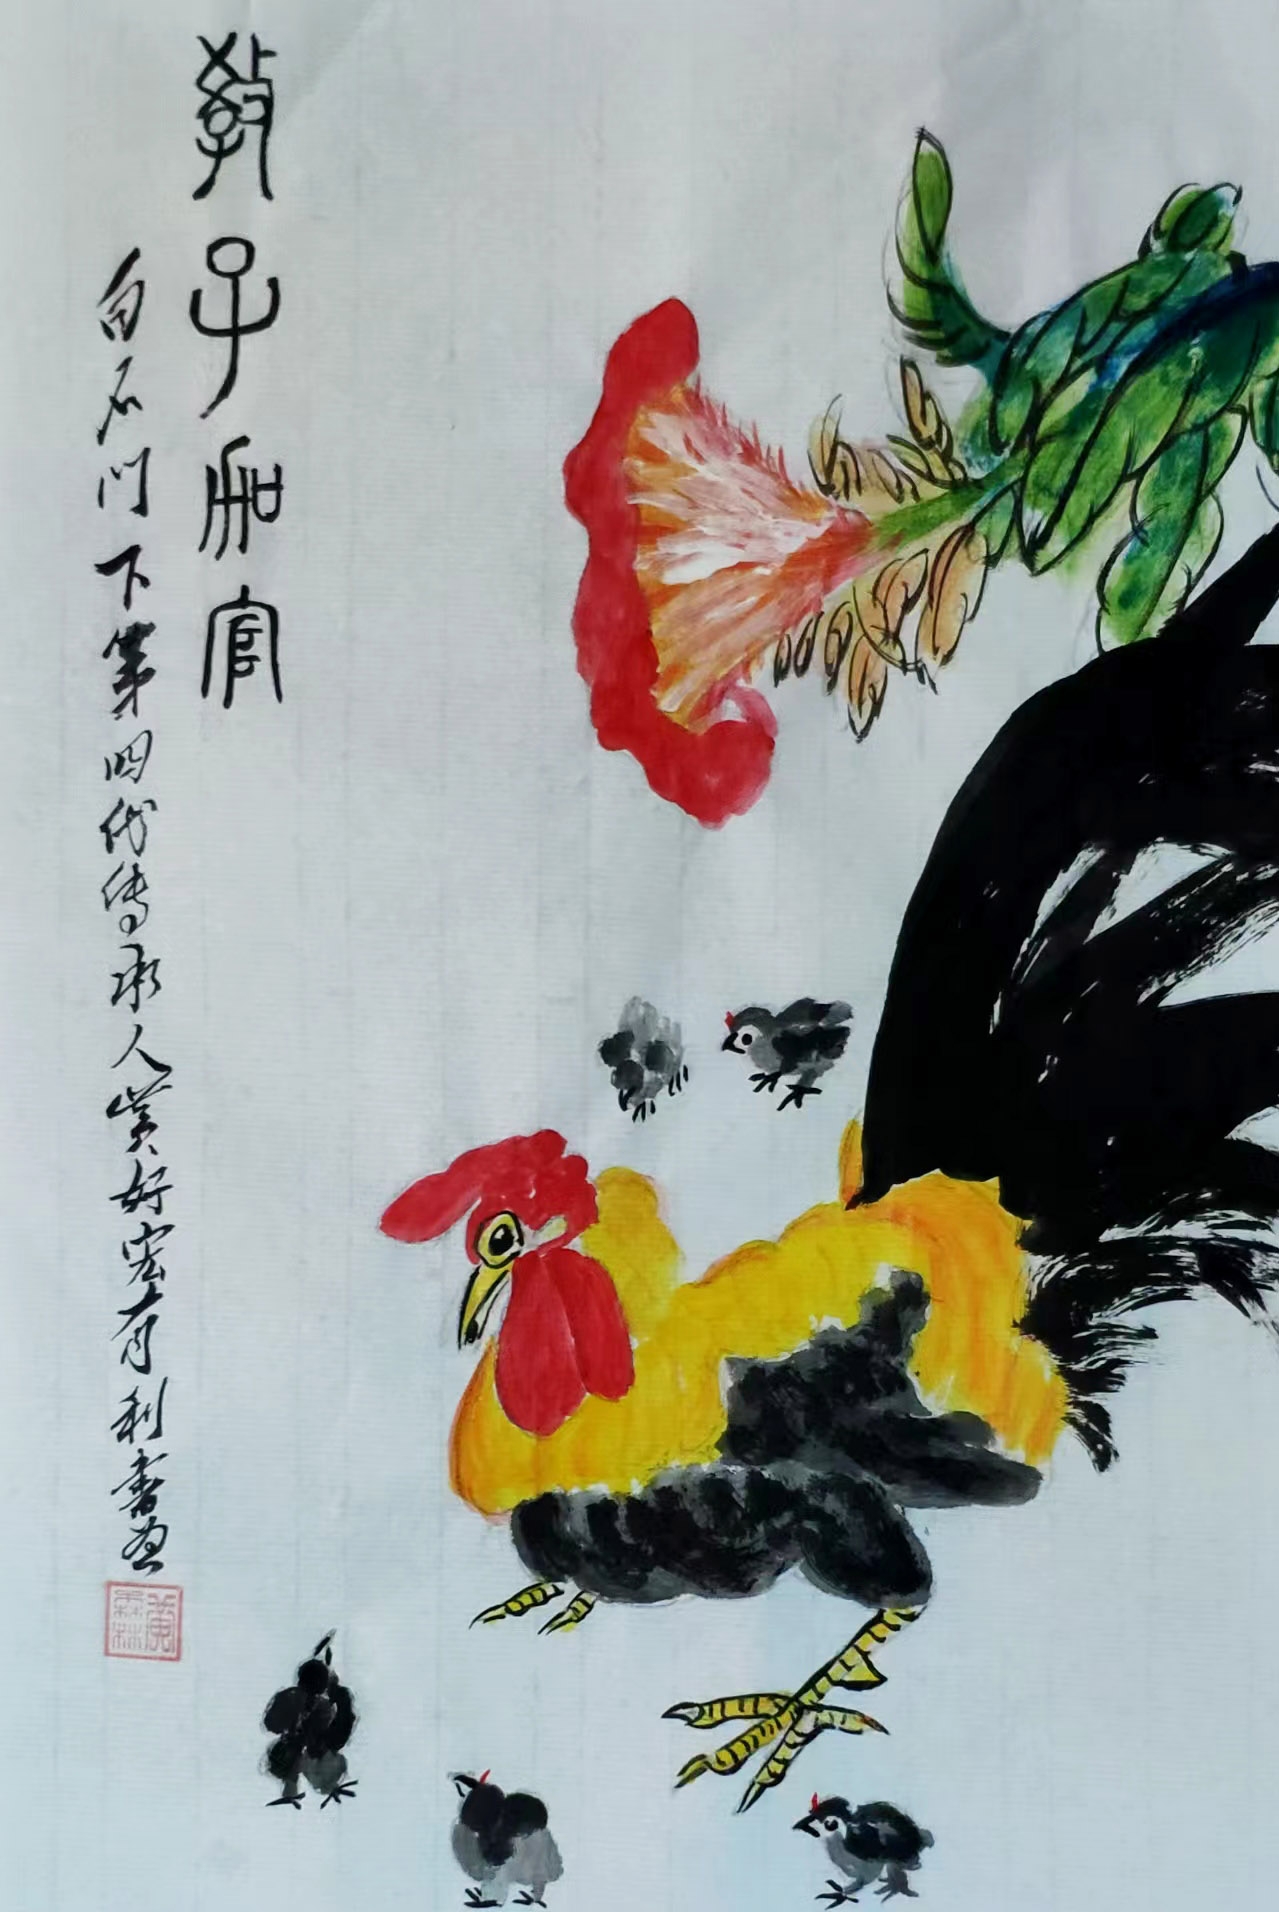 教子加官
白石门下第四代传承人黄好宏有利书画